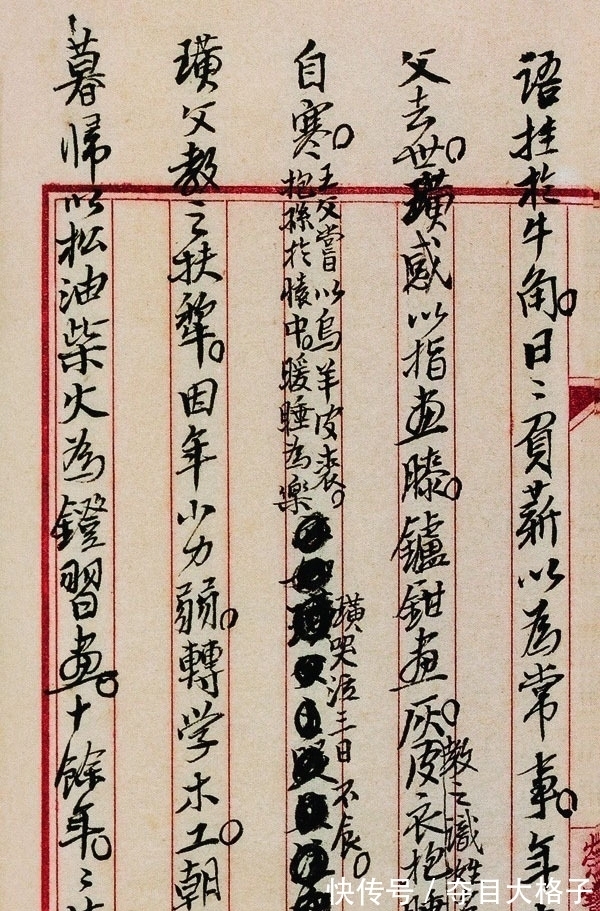 语挂於牛角。日〻負薪以為常事。年
父去世。璜感以指画膝。鑪鉗画灰。皮衣抱
教之識姓
自寒。
王父嘗以烏羊皮裘。
抱孫於懐中。暖睡為樂
璜哭泣三日不食。
璜父教之扶犂。因年小力弱。轉学木工。朝
暮歸以松油柴火為鐙習画。十餘年。〻
快传号/夺目大格子